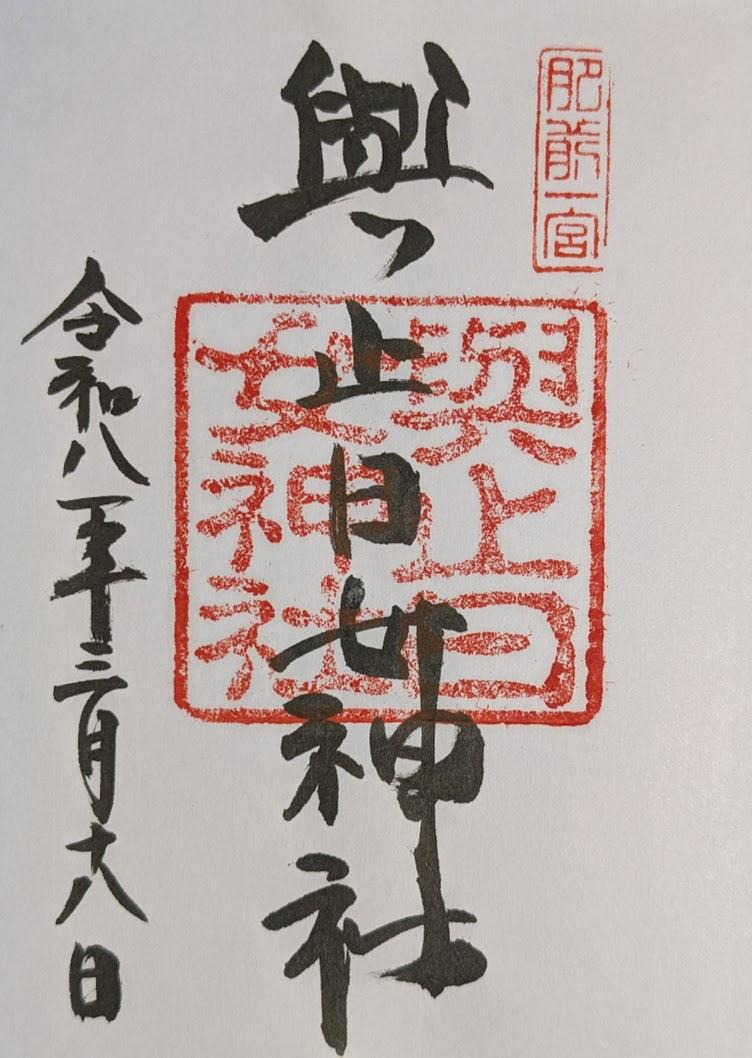 肥前一宮
與止日女神社
與止日
女神社
令和八年三月十八日